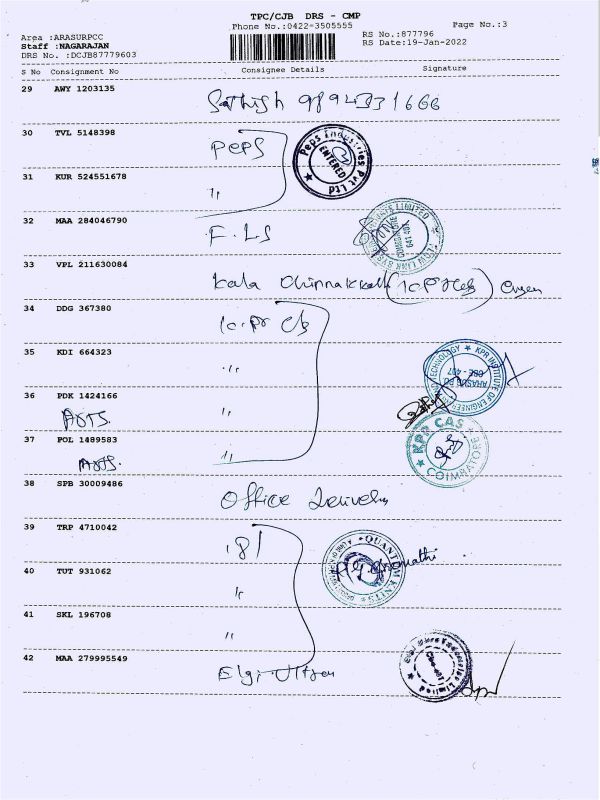 TPC/CJB DRS - CMP
Phone No.:0422-3505555
Page No.:3
Area :ARASURPCC
RS No.:877796
Staff :NAGARAJAN
RS Date:19-Jan-2022
DRS No. :DCJB87779603
S No Consignment No Consignee Details Signature
29 AWY 1203135
Sathish 9894331666
30 TVL 5148398
Peps
Peps Industries Pvt Ltd
ENTERED
31 KUR 524551678
"
32 MAA 284046790
F.LS
COIMBATORE
641 407
33 VPL 211630084
Kala
34 DDG 367380
35 KDI 664323
"
KPR INSTITUTE OF ENGINEERING AND TECHNOLOGY
ARASUR PO
CBE - 407
36 PDK 1424166
Arts.
"
37 POL 1489583
Arts.
"
KPR CAS
COIMBATORE
38 SPB 30009486
Office Delivery
39 TRP 4710042
40 TUT 931062
"
41 SKL 196708
"
42 MAA 279995549
Elgi